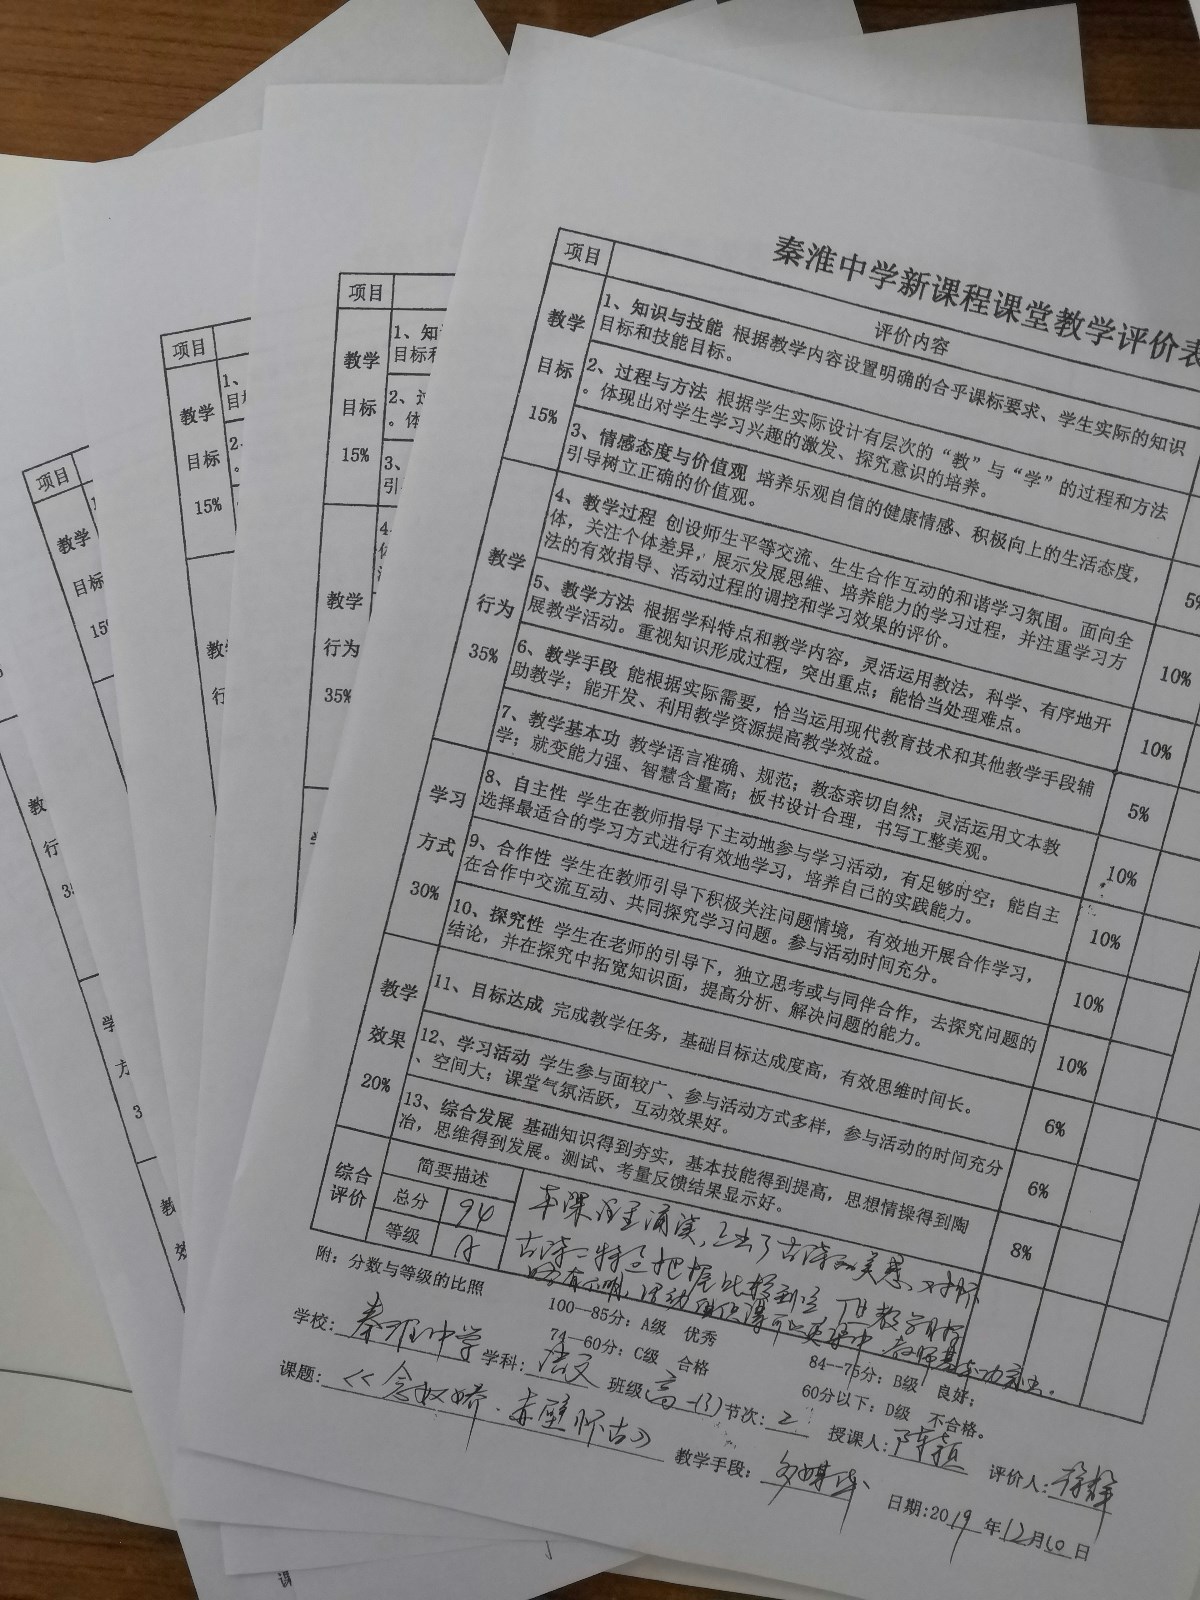 秦淮中学新课程课堂教学评价表
项目
评价内容
教学
目标
15%
1、知识与技能 根据教学内容设置明确的合乎课标要求、学生实际的知识
目标和技能目标。
2、过程与方法 根据学生实际设计有层次的“教”与“学”的过程和方法
。体现出对学生学习兴趣的激发、探究意识的培养。
3、情感态度与价值观 培养乐观自信的健康情感、积极向上的生活态度，
引导树立正确的价值观。
5%
教学
行为
35%
4、教学过程 创设师生平等交流、生生合作互动的和谐学习氛围。面向全
体，关注个体差异，展示发展思维、培养能力的学习过程，并注重学习方
法的有效指导、活动过程的调控和学习效果的评价。
10%
5、教学方法 根据学科特点和教学内容，灵活运用教法，科学、有序地开
展教学活动。重视知识形成过程，突出重点；能恰当处理难点。
10%
6、教学手段 能根据实际需要，恰当运用现代教育技术和其他教学手段辅
助教学；能开发、利用教学资源提高教学效益。
5%
7、教学基本功 教学语言准确、规范；教态亲切自然；灵活运用文本教
学；就变能力强、智慧含量高；板书设计合理，书写工整美观。
10%
学习
方式
30%
8、自主性 学生在教师指导下主动地参与学习活动，有足够时空；能自主
选择最适合的学习方式进行有效地学习，培养自己的实践能力。
10%
9、合作性 学生在教师引导下积极关注问题情境，有效地开展合作学习，
在合作中交流互动、共同探究学习问题。参与活动时间充分。
10%
10、探究性 学生在老师的引导下，独立思考或与同伴合作，去探究问题的
结论，并在探究中拓宽知识面，提高分析、解决问题的能力。
10%
教学
效果
20%
11、目标达成 完成教学任务，基础目标达成度高，有效思维时间长。
6%
12、学习活动 学生参与面较广、参与活动方式多样，参与活动的时间充分
、空间大；课堂气氛活跃，互动效果好。
6%
13、综合发展 基础知识得到夯实，基本技能得到提高，思想情操得到陶
冶，思维得到发展。测试、考量反馈结果显示好。
8%
综合
评价
简要描述
总分 94
等级 A
附：分数与等级的比照
100—85分：A级 优秀
84—75分：B级 良好；
74—60分：C级 合格
60分以下：D级 不合格。
学校：秦淮中学 学科：语文 班级 高一(3) 节次：2 授课人：陈颖 评价人：
课题：《念奴娇·赤壁怀古》 教学手段：多媒体 日期：2019年12月10日
项目
教学
目标
15%
1、知识
目标和
2、过
。体
3、
引
教学
行为
35%
项目
教学
目标
15%
1、
目标
2、
教
行
项目
教学
目标
15%
教
行
学
方
3
教
效
课